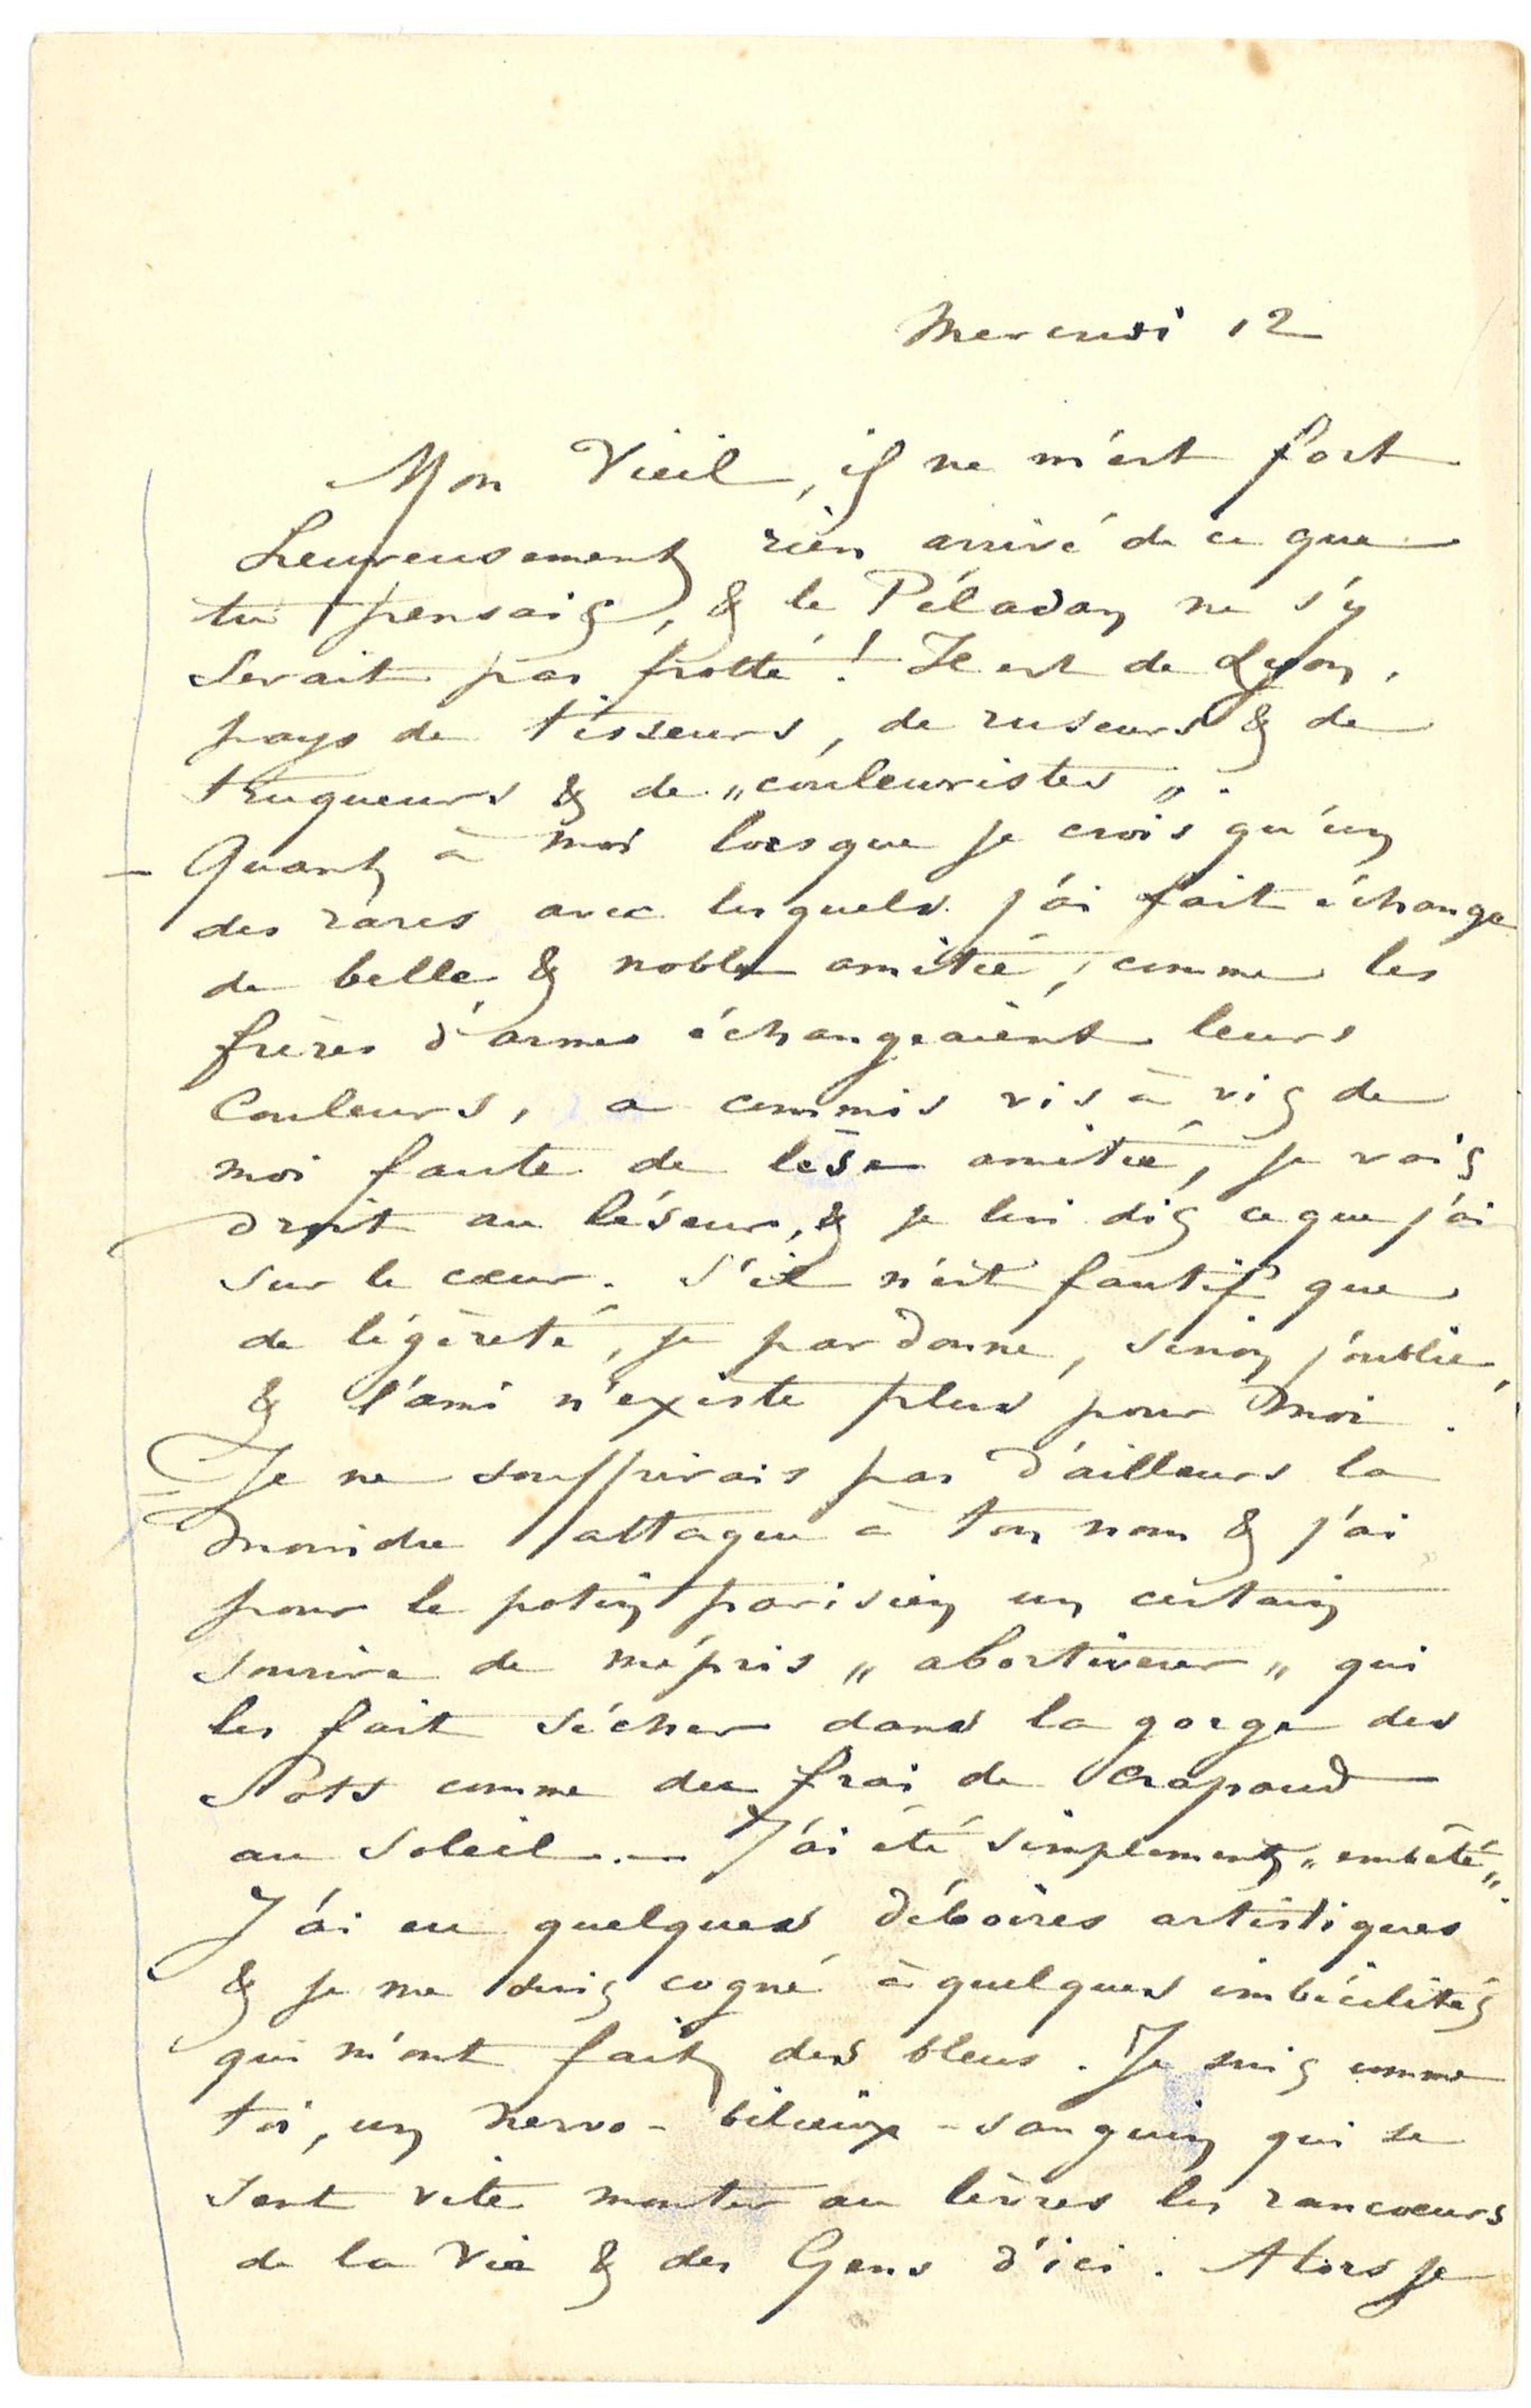 Mercredi 12
Mon Vieil, il ne m'est fort
heureusement rien arrivé de ce que
tu pensais, & le Péladan ne s'y
serait pas frotté ! Il est de Lyon,
pays de tisseurs, de ruseurs & de
truqueurs & de „couleuristes„.
– Quant à moi lorsque je crois qu'un
des rares avec lesquels j'ai fait échange
de belle & noble amitié, comme les
frères d'armes échangeaient leurs
Couleurs, a commis vis à vis de
moi faute de lèse amitié, je vais
droit au léseur, & je lui dis ce que j'ai
sur le cœur. S'il n'est fautif que
de légèreté, je pardonne, sinon j'oublie,
& l'ami n'existe plus pour moi.
Je ne souffrirais pas d'ailleurs la
moindre attaque à ton nom & j'ai
pour le potin parisien un certain
sourire de mépris „abortiveur„ qui
les fait sécher dans la gorge des
Sots comme du frai de crapaud
au soleil. — J'ai été simplement „embêté„.
J'ai eu quelques déboires artistiques
& je me suis cogné à quelques imbécilités
qui m'ont fait des bleus. Je suis comme
toi, un nervo-bilieux-sanguin qui se
sent vite monter au lèvres les rancœurs
de la Vie & des Gens d'ici. Alors je